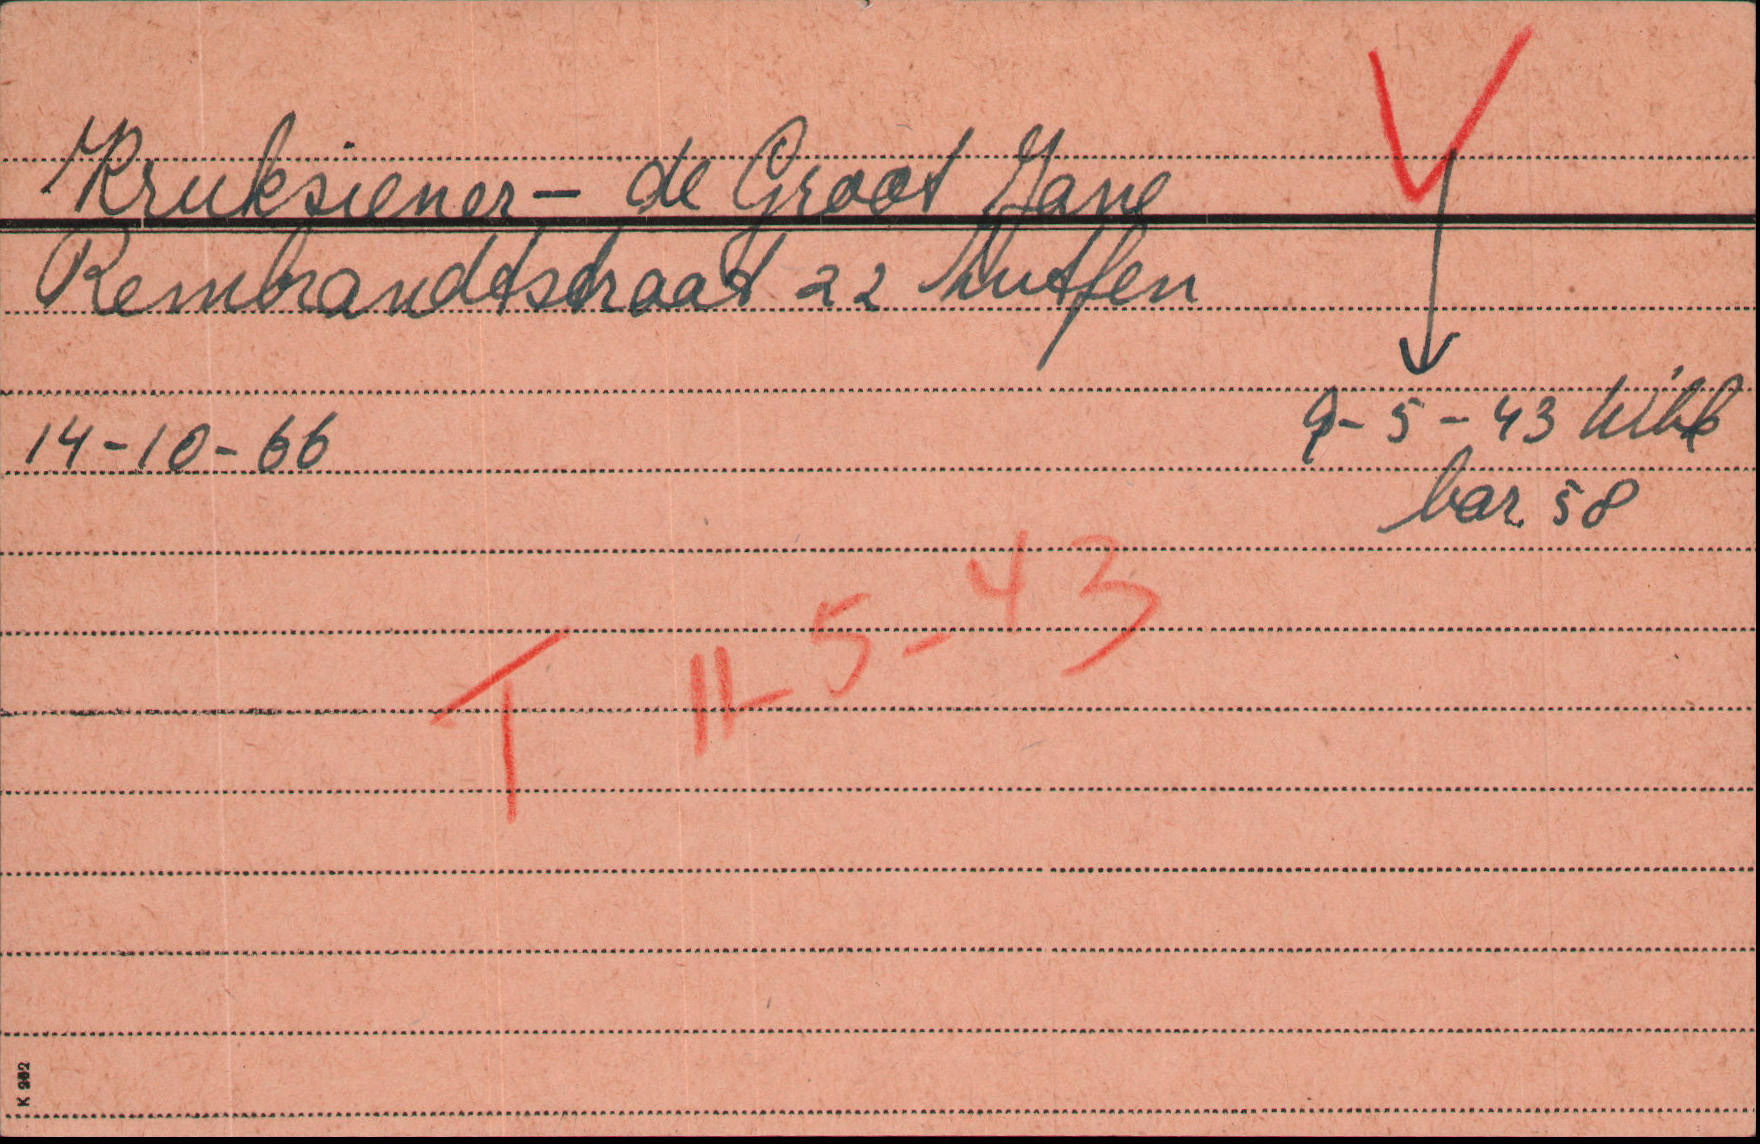 V
Kruksiener - de Groot Jane
Rembrandtstraat 22 Zutfen
14-10-66
9-5-43 
bar. 58
T 11-5-43
K 902